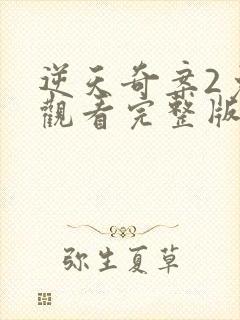 逆天奇案2
觀看完整版
弥生夏草